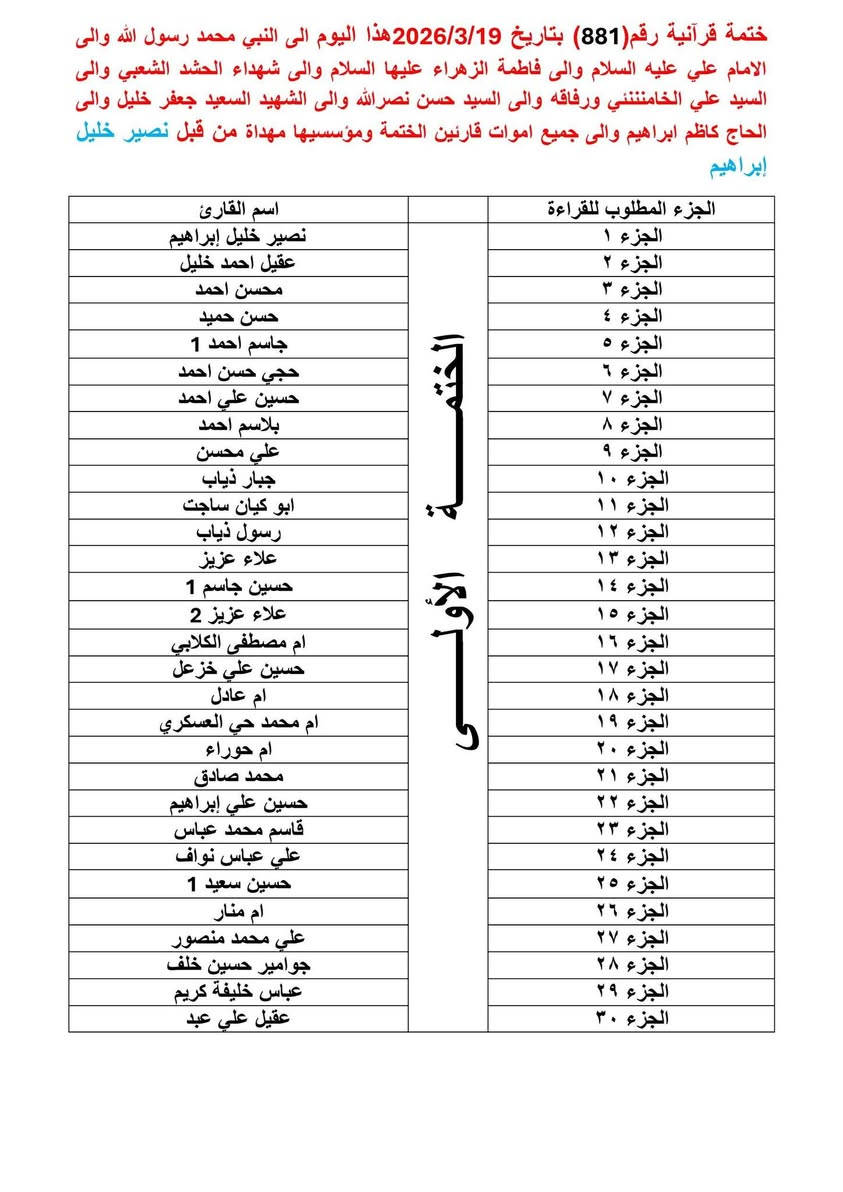 ختمة قرآنية رقم(881) بتاريخ 2026/3/19هذا اليوم الى النبي محمد رسول الله والى
الامام علي عليه السلام والى فاطمة الزهراء عليها السلام والى شهداء الحشد الشعبي والى
السيد علي الخامنننئي ورفاقه والى السيد حسن نصرالله والى الشهيد السعيد جعفر خليل والى
الحاج كاظم ابراهيم والى جميع اموات قارئين الختمة ومؤسسيها مهداة من قبل نصير خليل
إبراهيم
الجزء المطلوب للقراءة اسم القارئ
الختمـــــة الأولـــــى
الجزء ١ نصير خليل إبراهيم
الجزء ٢ عقيل احمد خليل
الجزء ٣ محسن احمد
الجزء ٤ حسن حميد
الجزء ٥ جاسم احمد 1
الجزء ٦ حجي حسن احمد
الجزء ٧ حسين علي احمد
الجزء ٨ بلاسم احمد
الجزء ٩ علي محسن
الجزء ١٠ جبار ذياب
الجزء ١١ ابو كيان ساجت
الجزء ١٢ رسول ذياب
الجزء ١٣ علاء عزيز
الجزء ١٤ حسين جاسم 1
الجزء ١٥ علاء عزيز 2
الجزء ١٦ ام مصطفى الكلابي
الجزء ١٧ حسين علي خزعل
الجزء ١٨ ام عادل
الجزء ١٩ ام محمد حي العسكري
الجزء ٢٠ ام حوراء
الجزء ٢١ محمد صادق
الجزء ٢٢ حسين علي إبراهيم
الجزء ٢٣ قاسم محمد عباس
الجزء ٢٤ علي عباس نواف
الجزء ٢٥ حسين سعيد 1
الجزء ٢٦ ام منار
الجزء ٢٧ علي محمد منصور
الجزء ٢٨ جوامير حسين خلف
الجزء ٢٩ عباس خليفة كريم
الجزء ٣٠ عقيل علي عبد